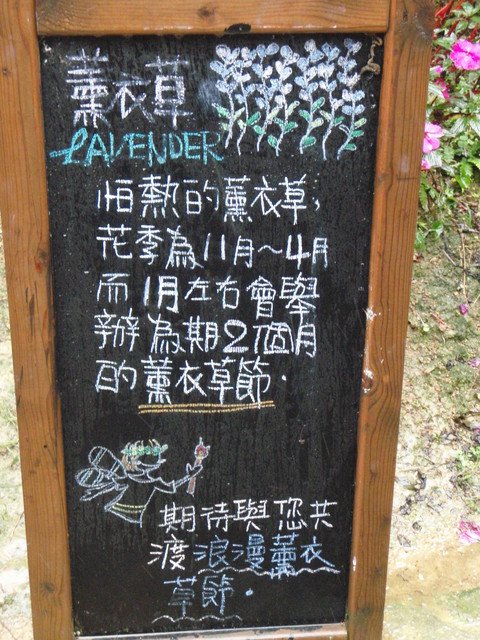 薰衣草
LAVENDER
怕熱的薰衣草,
花季為11月~4月
而1月左右會舉
辦為期2個月
的薰衣草節.
期待與您共
渡浪漫薰衣
草節.